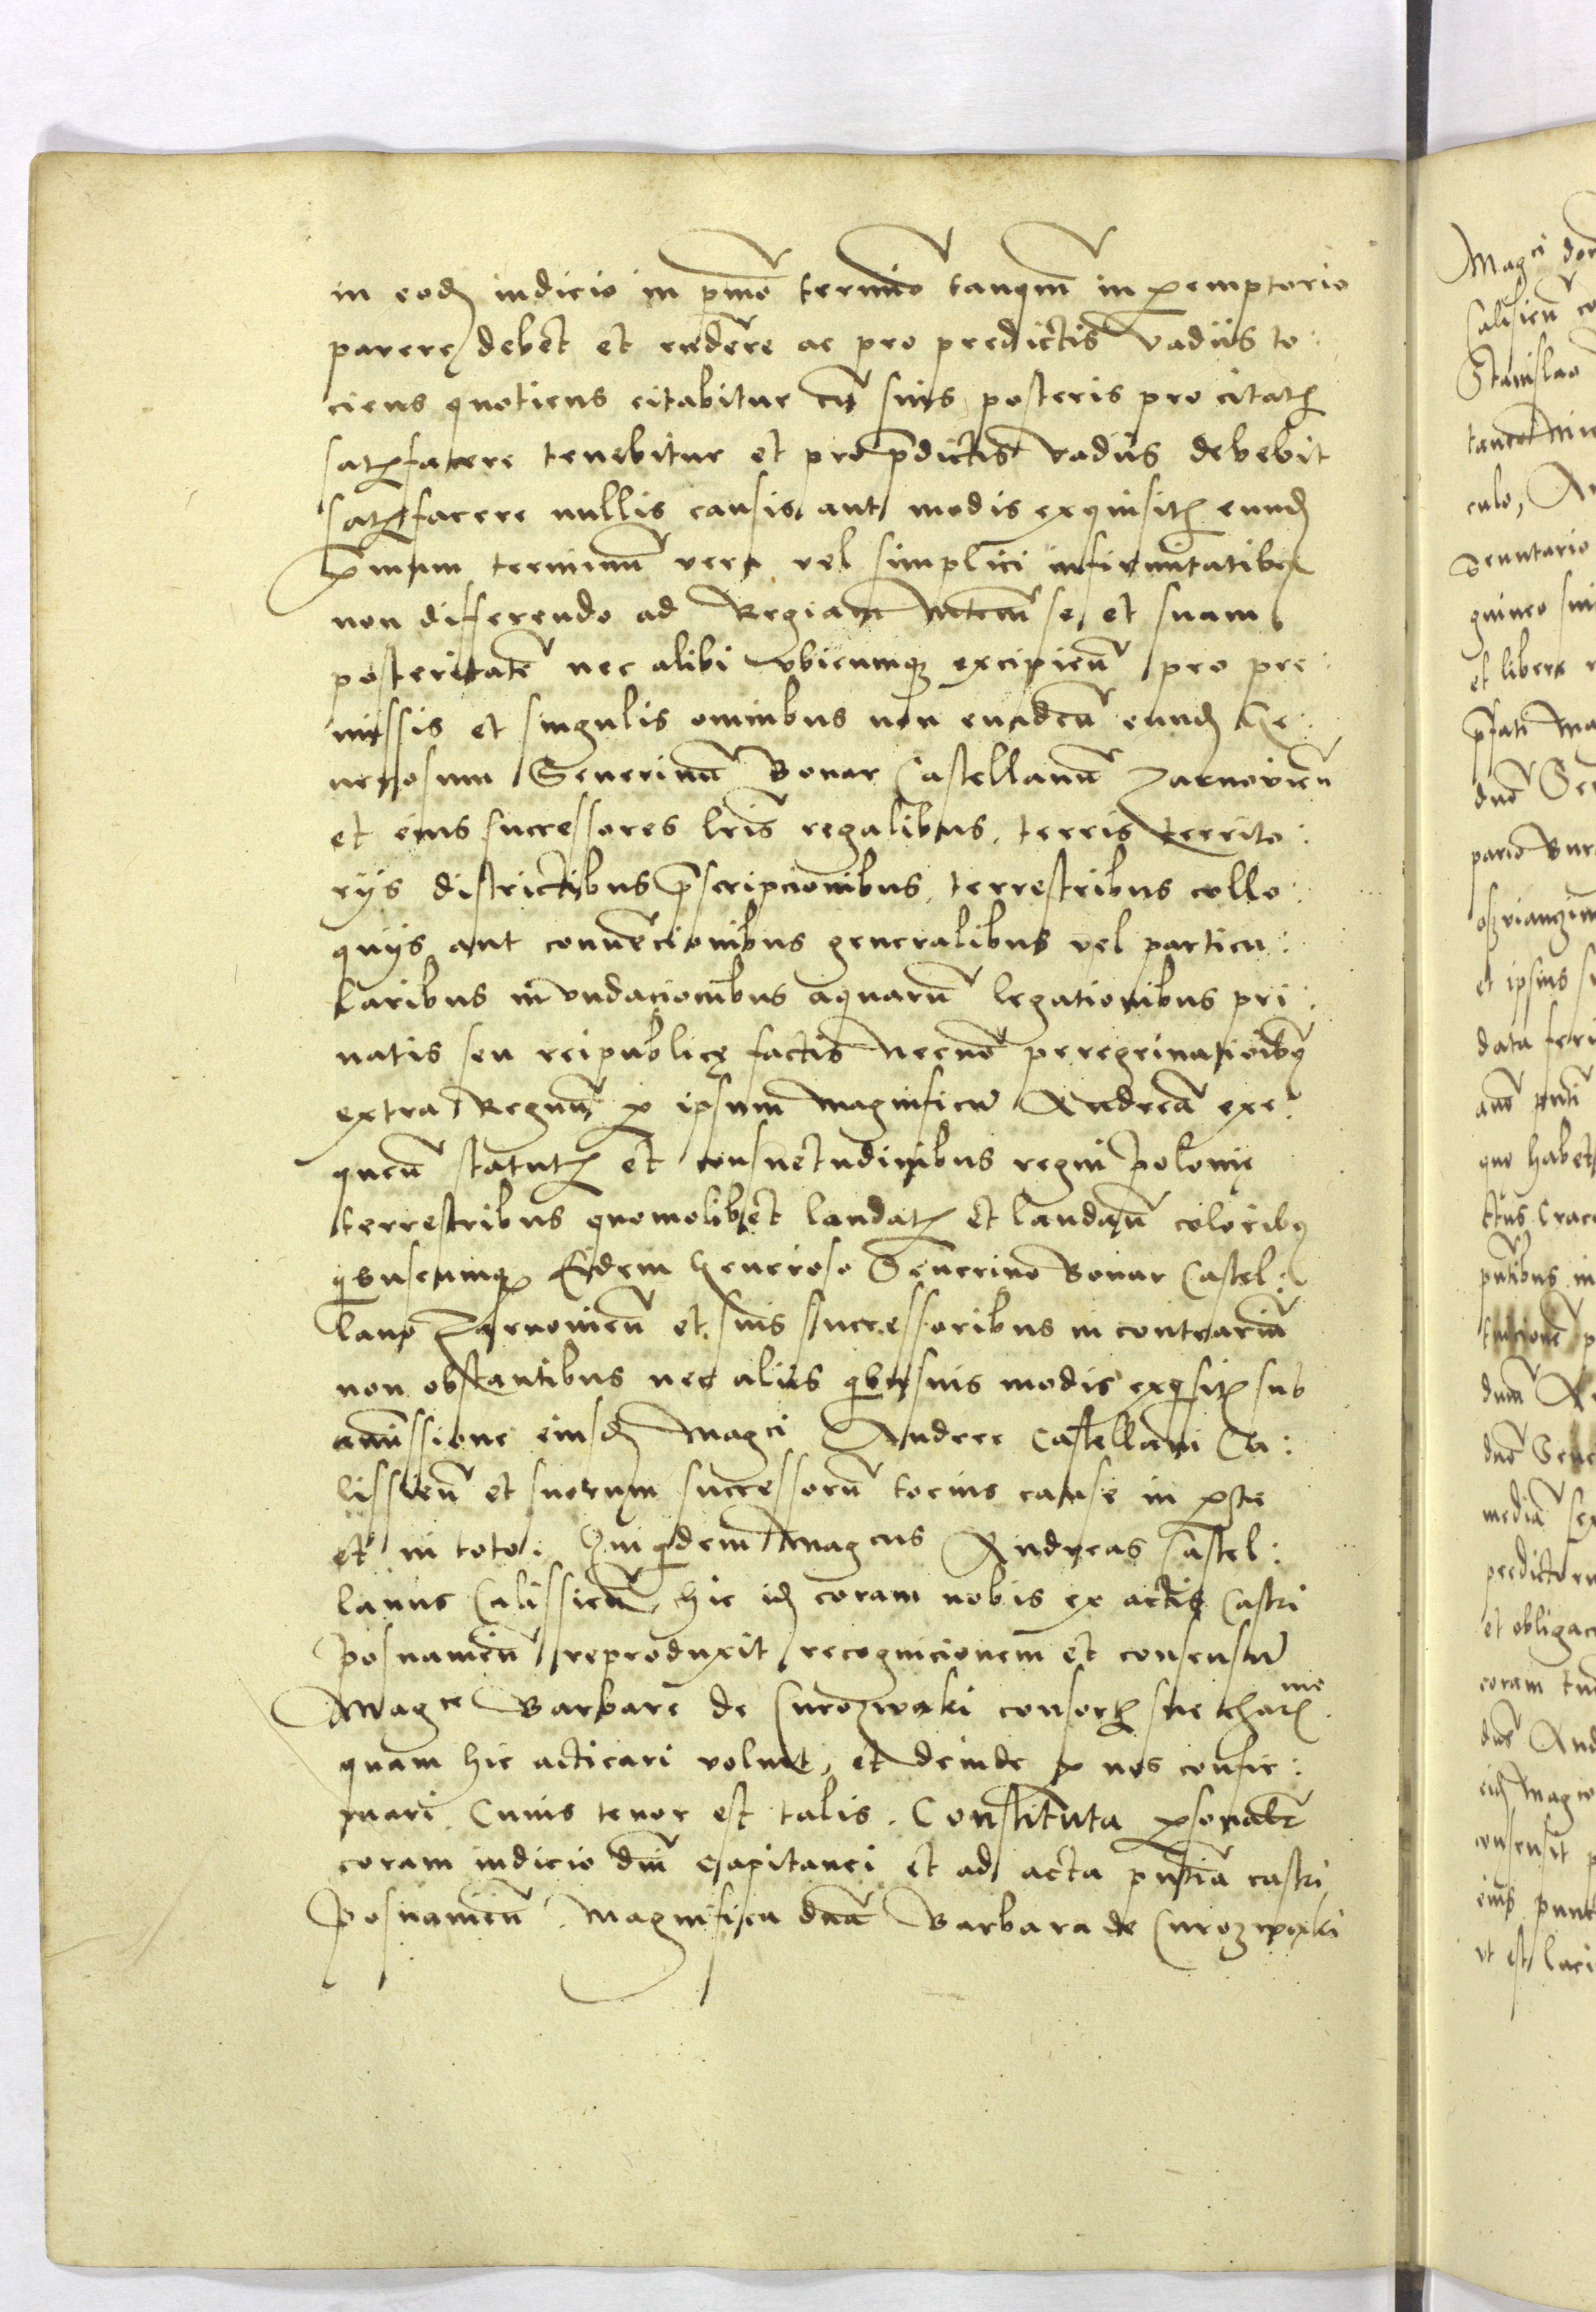 in eod indicio in pmo termino tanqm in peremptorio
parere debet et rndere ac pro predictis vadiis to:
ciens quotiens citabitur cu suis posteris pro citatis
satisfacere tenebitur et pro pdictis vadiis debebit
satisfacere nullis causis aut modis exquisitis eund
primum terminu vera vel simplici infirmitatibus
non differendo ad Regiam Mtem se et suam
posteritate nec alibi vbicumq excipien pro pre:
missis et singulis omnibus non euaden eund Ge:
nerosum Seuerinu Bonar Castellanu Zarnovien
et eius successores lris regalibus, terris territo:
rijs districtibus pscripcionibus, terrestribus collo:
quijs aut conuecionibus generalibus vel particu:
laribus in vndacionibus aquaru legationibus pri:
uatis seu reipublicę factis necno peregrinationibq
extra Regnu p ipsum magnificu Andrea exe:
quen statutis et consuetudinibus regni Polonię
terrestribus quomolibet laudatis et laudan coloribq
qbuscumq Eidem Generoso Seuerino Bonar Castel:
lano Zarnouien et suis successoribus in contrariu
non obstantibus nec aliis qbusuis modis exqsitis sub
amissione eiusd Magci Andree Castellani Ca:
lissien et suorum successoru tocius cause in parte
et in toto: Qui qdem Magcus Andreas Castel:
lanus Calissien, hic id coram nobis ex actis Castri
Posnanien reproduxit recognicionem et consensu
Magce Barbare de Curozwaki consortis sue charis me
quam hic acticari voluit, et deinde p nos confir:
mari. Cuius tenor est talis. Constituta psonalr
coram indicio dni Capitanei et ad acta pntia castri
Posnanien. Magnifica dna Barbara de Curozwaki

Magci do
Calisien co
Stanislao
culo, A
guineo sui
et libere
pfati Ma
duo Se
et ipsius s
data feri
ano pnti
quo habet
pntibus in
duo Seue
media sex
et obligac
duo And
eid Magco
consensit p
ut est laci